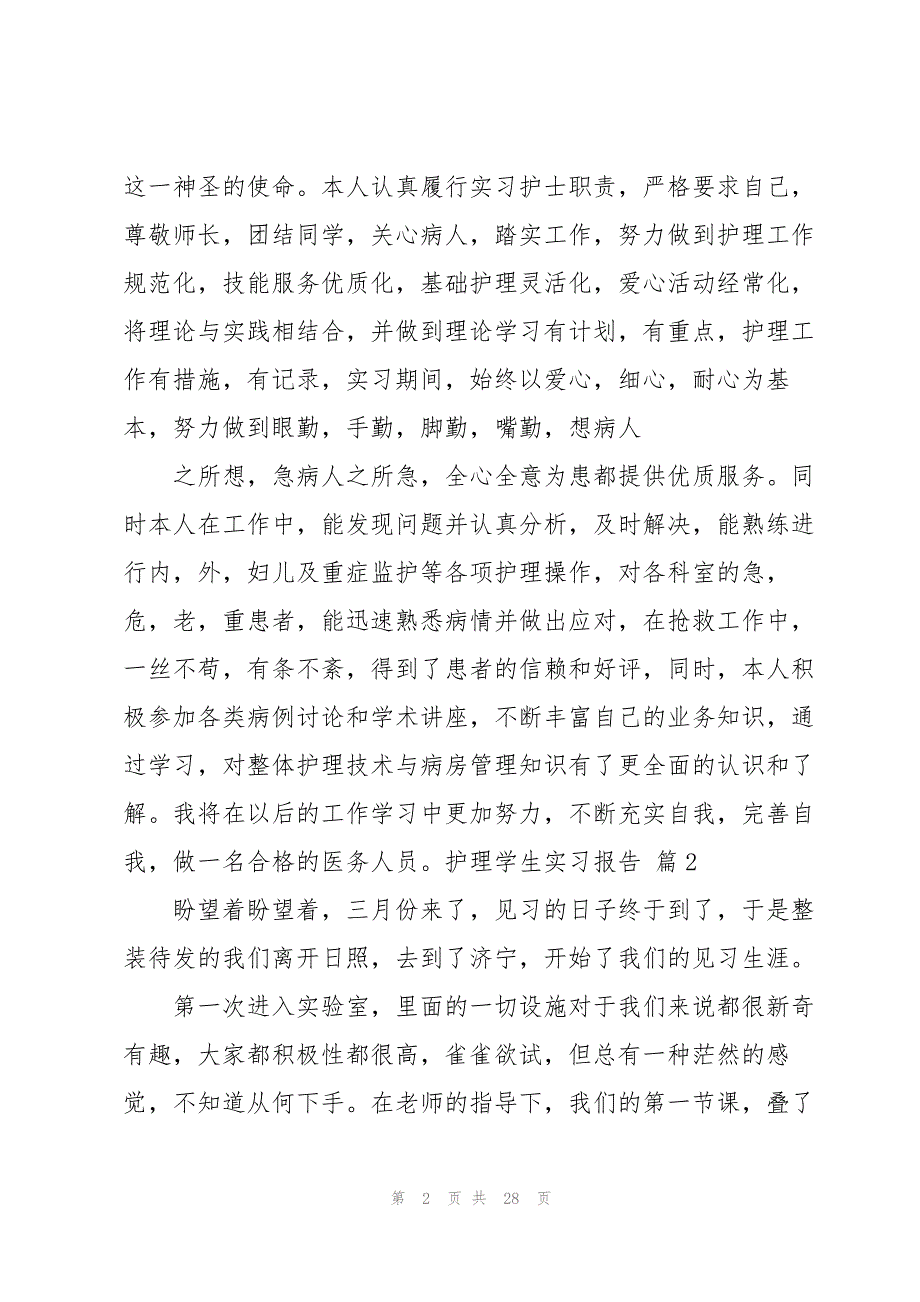 这一神圣的使命。本人认真履行实习护士职责，严格要求自己，
尊敬师长，团结同学，关心病人，踏实工作，努力做到护理工作
规范化，技能服务优质化，基础护理灵活化，爱心活动经常化，
将理论与实践相结合，并做到理论学习有计划，有重点，护理工
作有措施，有记录，实习期间，始终以爱心，细心，耐心为基
本，努力做到眼勤，手勤，脚勤，嘴勤，想病人
之所想，急病人之所急，全心全意为患都提供优质服务。同
时本人在工作中，能发现问题并认真分析，及时解决，能熟练进
行内，外，妇儿及重症监护等各项护理操作，对各科室的急，
危，老，重患者，能迅速熟悉病情并做出应对，在抢救工作中，
一丝不苟，有条不紊，得到了患者的信赖和好评，同时，本人积
极参加各类病例讨论和学术讲座，不断丰富自己的业务知识，通
过学习，对整体护理技术与病房管理知识有了更全面的认识和了
解。我将在以后的工作学习中更加努力，不断充实自我，完善自
我，做一名合格的医务人员。护理学生实习报告 篇2
盼望着盼望着，三月份来了，见习的日子终于到了，于是整
装待发的我们离开日照，去到了济宁，开始了我们的见习生涯。
第一次进入实验室，里面的一切设施对于我们来说都很新奇
有趣，大家都积极性都很高，雀雀欲试，但总有一种茫然的感
觉，不知道从何下手。在老师的指导下，我们的第一节课，叠了
第 2 页 共 28 页